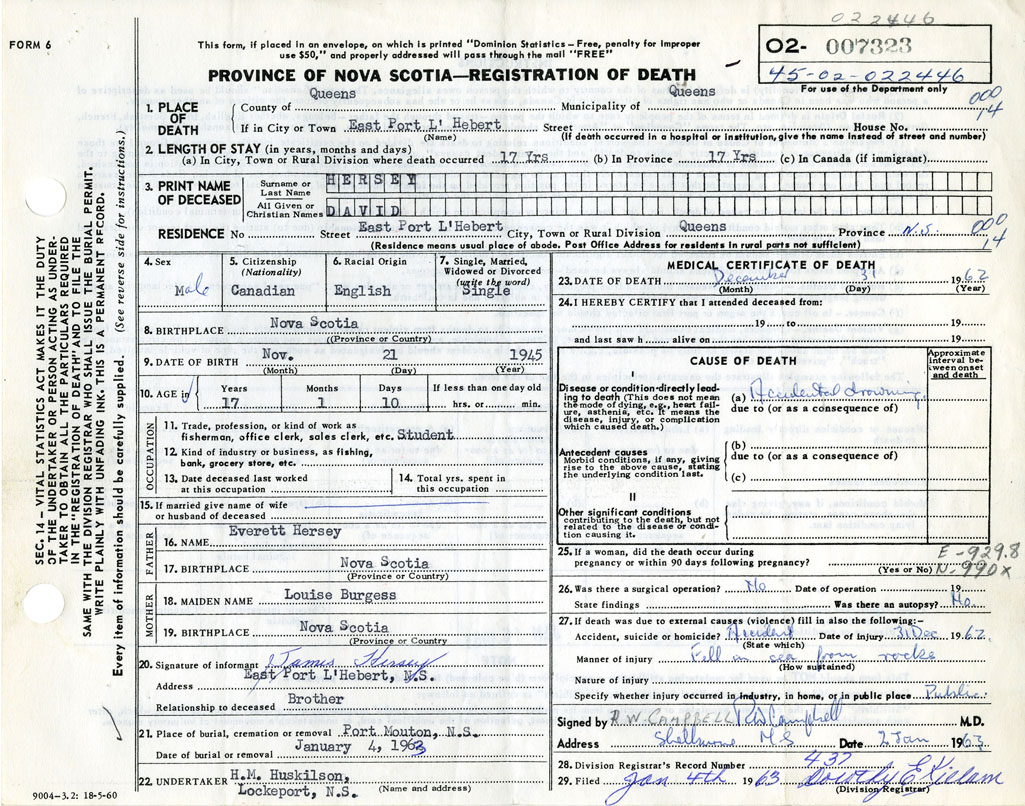 022446
FORM 6
This form, if placed in an envelope, on which is printed "Dominion Statistics – Free, penalty for improper
use $50," and properly addressed will pass through the mail "FREE"
O2- 007323
45-02-022446
For use of the Department only
PROVINCE OF NOVA SCOTIA—REGISTRATION OF DEATH
000
14
1. PLACE OF DEATH
County of Queens Municipality of Queens
If in City or Town East Port L' Hebert Street House No.
(Name) (If death occurred in a hospital or institution, give the name instead of street and number)
2. LENGTH OF STAY (in years, months and days)
(a) In City, Town or Rural Division where death occurred 17 Yrs (b) In Province 17 Yrs (c) In Canada (if immigrant)
3. PRINT NAME OF DECEASED
Surname or Last Name HERSEY
All Given or Christian Names DAVID
RESIDENCE No Street East Port L'Hebert City, Town or Rural Division Queens Province N.S.
000
14
(Residence means usual place of abode. Post Office Address for residents in rural parts not sufficient)
4. Sex Male
5. Citizenship (Nationality) Canadian
6. Racial Origin English
7. Single, Married, Widowed or Divorced (write the word) Single
8. BIRTHPLACE Nova Scotia
((Province or Country)
9. DATE OF BIRTH Nov. 21 1945
(Month) (Day) (Year)
10. AGE in Years Months Days If less than one day old
17 1 10 hrs. or min.
OCCUPATION
11. Trade, profession, or kind of work as
fisherman, office clerk, sales clerk, etc. Student
12. Kind of industry or business, as fishing,
bank, grocery store, etc.
13. Date deceased last worked
at this occupation
14. Total yrs. spent in
this occupation
15. If married give name of wife
or husband of deceased
FATHER
16. NAME Everett Hersey
17. BIRTHPLACE Nova Scotia
(Province or Country)
MOTHER
18. MAIDEN NAME Louise Burgess
19. BIRTHPLACE Nova Scotia
(Province or Country
20. Signature of informant James Hersey
Address East Port L'Hebert, N.S.
Relationship to deceased Brother
21. Place of burial, cremation or removal Port Mouton, N.S.
Date of burial or removal January 4, 1963
22. UNDERTAKER H.M. Huskilson,
Lockeport, N.S. (Name and address)
9004-3.2: 18-5-60
MEDICAL CERTIFICATE OF DEATH
23. DATE OF DEATH December 31 1962
(Month) (Day) (Year)
24. I HEREBY CERTIFY that I attended deceased from:
19 to 19
and last saw h alive on 19
CAUSE OF DEATH
Approximate
Interval be-
tween onset
and death
I
Disease or condition directly lead-
ing to death (This does not mean
the mode of dying, e.g., heart fail-
ure, asthenia, etc. It means the
disease, injury, or complication
which caused death.)
(a) Accidental drowning
due to (or as a consequence of)
Antecedent causes
Morbid conditions, if any, giving
rise to the above cause, stating
the underlying condition last.
(b)
due to (or as a consequence of)
(c)
II
Other significant conditions
contributing to the death, but not
related to the disease or condi-
tion causing it.
25. If a woman, did the death occur during
pregnancy or within 90 days following pregnancy?
(Yes or No)
E-929.8
N-990x
26. Was there a surgical operation? No Date of operation 19
State findings Was there an autopsy? No.
27. If death was due to external causes (violence) fill in also the following:–
Accident, suicide or homicide? Accident Date of injury 31 Dec 1962
(State which)
Manner of injury Fell in sea from rocks
(How sustained)
Nature of injury
Specify whether injury occurred in industry, in home, or in public place Public.
Signed by R.W. CAMPBELL RW Campbell M.D.
Address Shelburne N S Date 2 Jan 1963
28. Division Registrar's Record Number 437
29. Filed Jan 4th 1963 Dorothy E Killam
(Division Registrar)
SEC. 14 – VITAL STATISTICS ACT MAKES IT THE DUTY
OF THE UNDERTAKER OR PERSON ACTING AS UNDER-
TAKER TO OBTAIN ALL THE PARTICULARS REQUIRED
IN THE "REGISTRATION OF DEATH" AND TO FILE THE
SAME WITH THE DIVISION REGISTRAR WHO SHALL ISSUE THE BURIAL PERMIT.
WRITE PLAINLY WITH UNFADING INK. THIS IS A PERMANENT RECORD.
Every item of information should be carefully supplied. (See reverse side for instructions.)